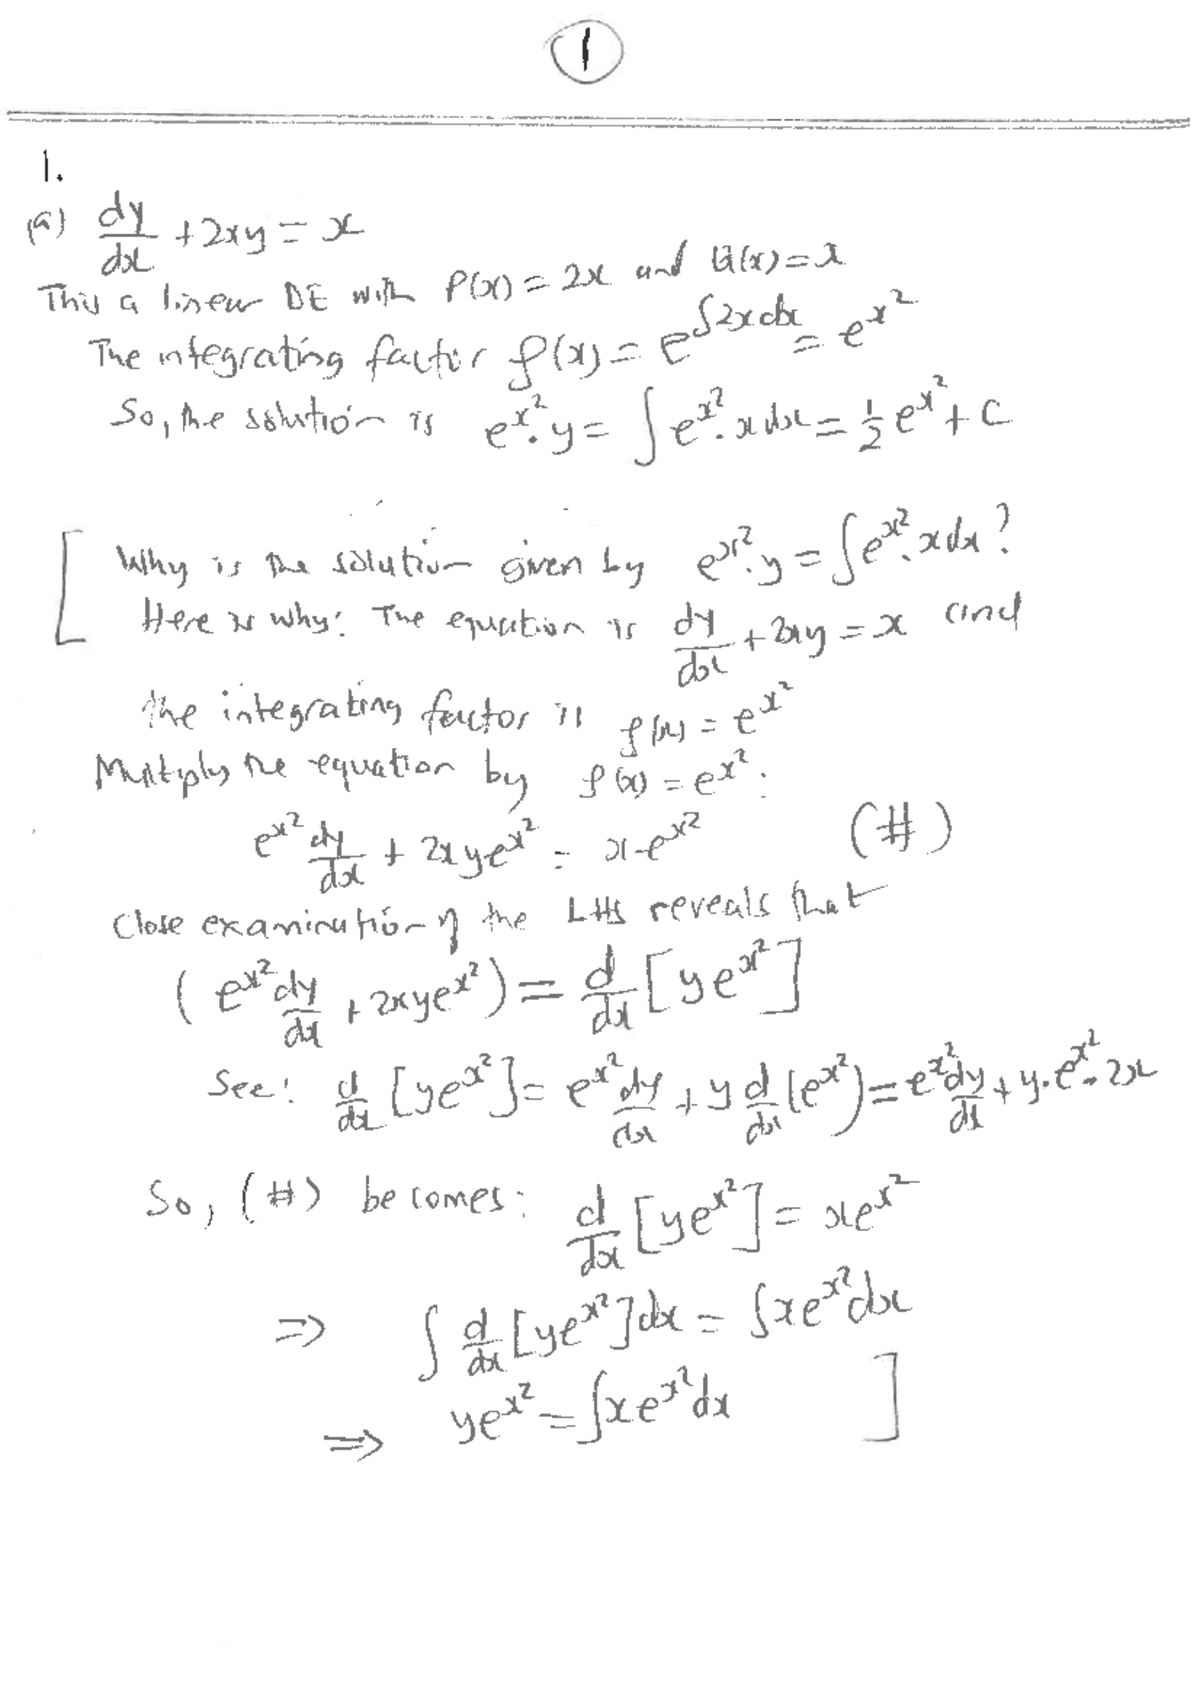 1
1.
(a) dy/dx + 2xy = x
This a linear DE with P(x) = 2x and Q(x) = x
The integrating factor ρ(x) = e^∫2xdx = e^x²
So, the solution is e^x². y = ∫e^x². x dx = 1/2 e^x² + C
[ Why is the solution given by e^x². y = ∫e^x². x dx?
Here is why: The equation is dy/dx + 2xy = x and
the integrating factor is ρ(x) = e^x²
Multiply the equation by ρ(x) = e^x²:
e^x² dy/dx + 2xye^x² = x·e^x² (#)
Close examination of the LHS reveals that
(e^x² dy/dx + 2xye^x²) = d/dx [ye^x²]
See: d/dx [ye^x²] = e^x² dy/dx + y d/dx (e^x²) = e^x² dy/dx + y·e^x²·2x
So, (#) becomes: d/dx [ye^x²] = xe^x²
⇒ ∫ d/dx [ye^x²]dx = ∫xe^x²dx
⇒ ye^x² = ∫xe^x²dx ]